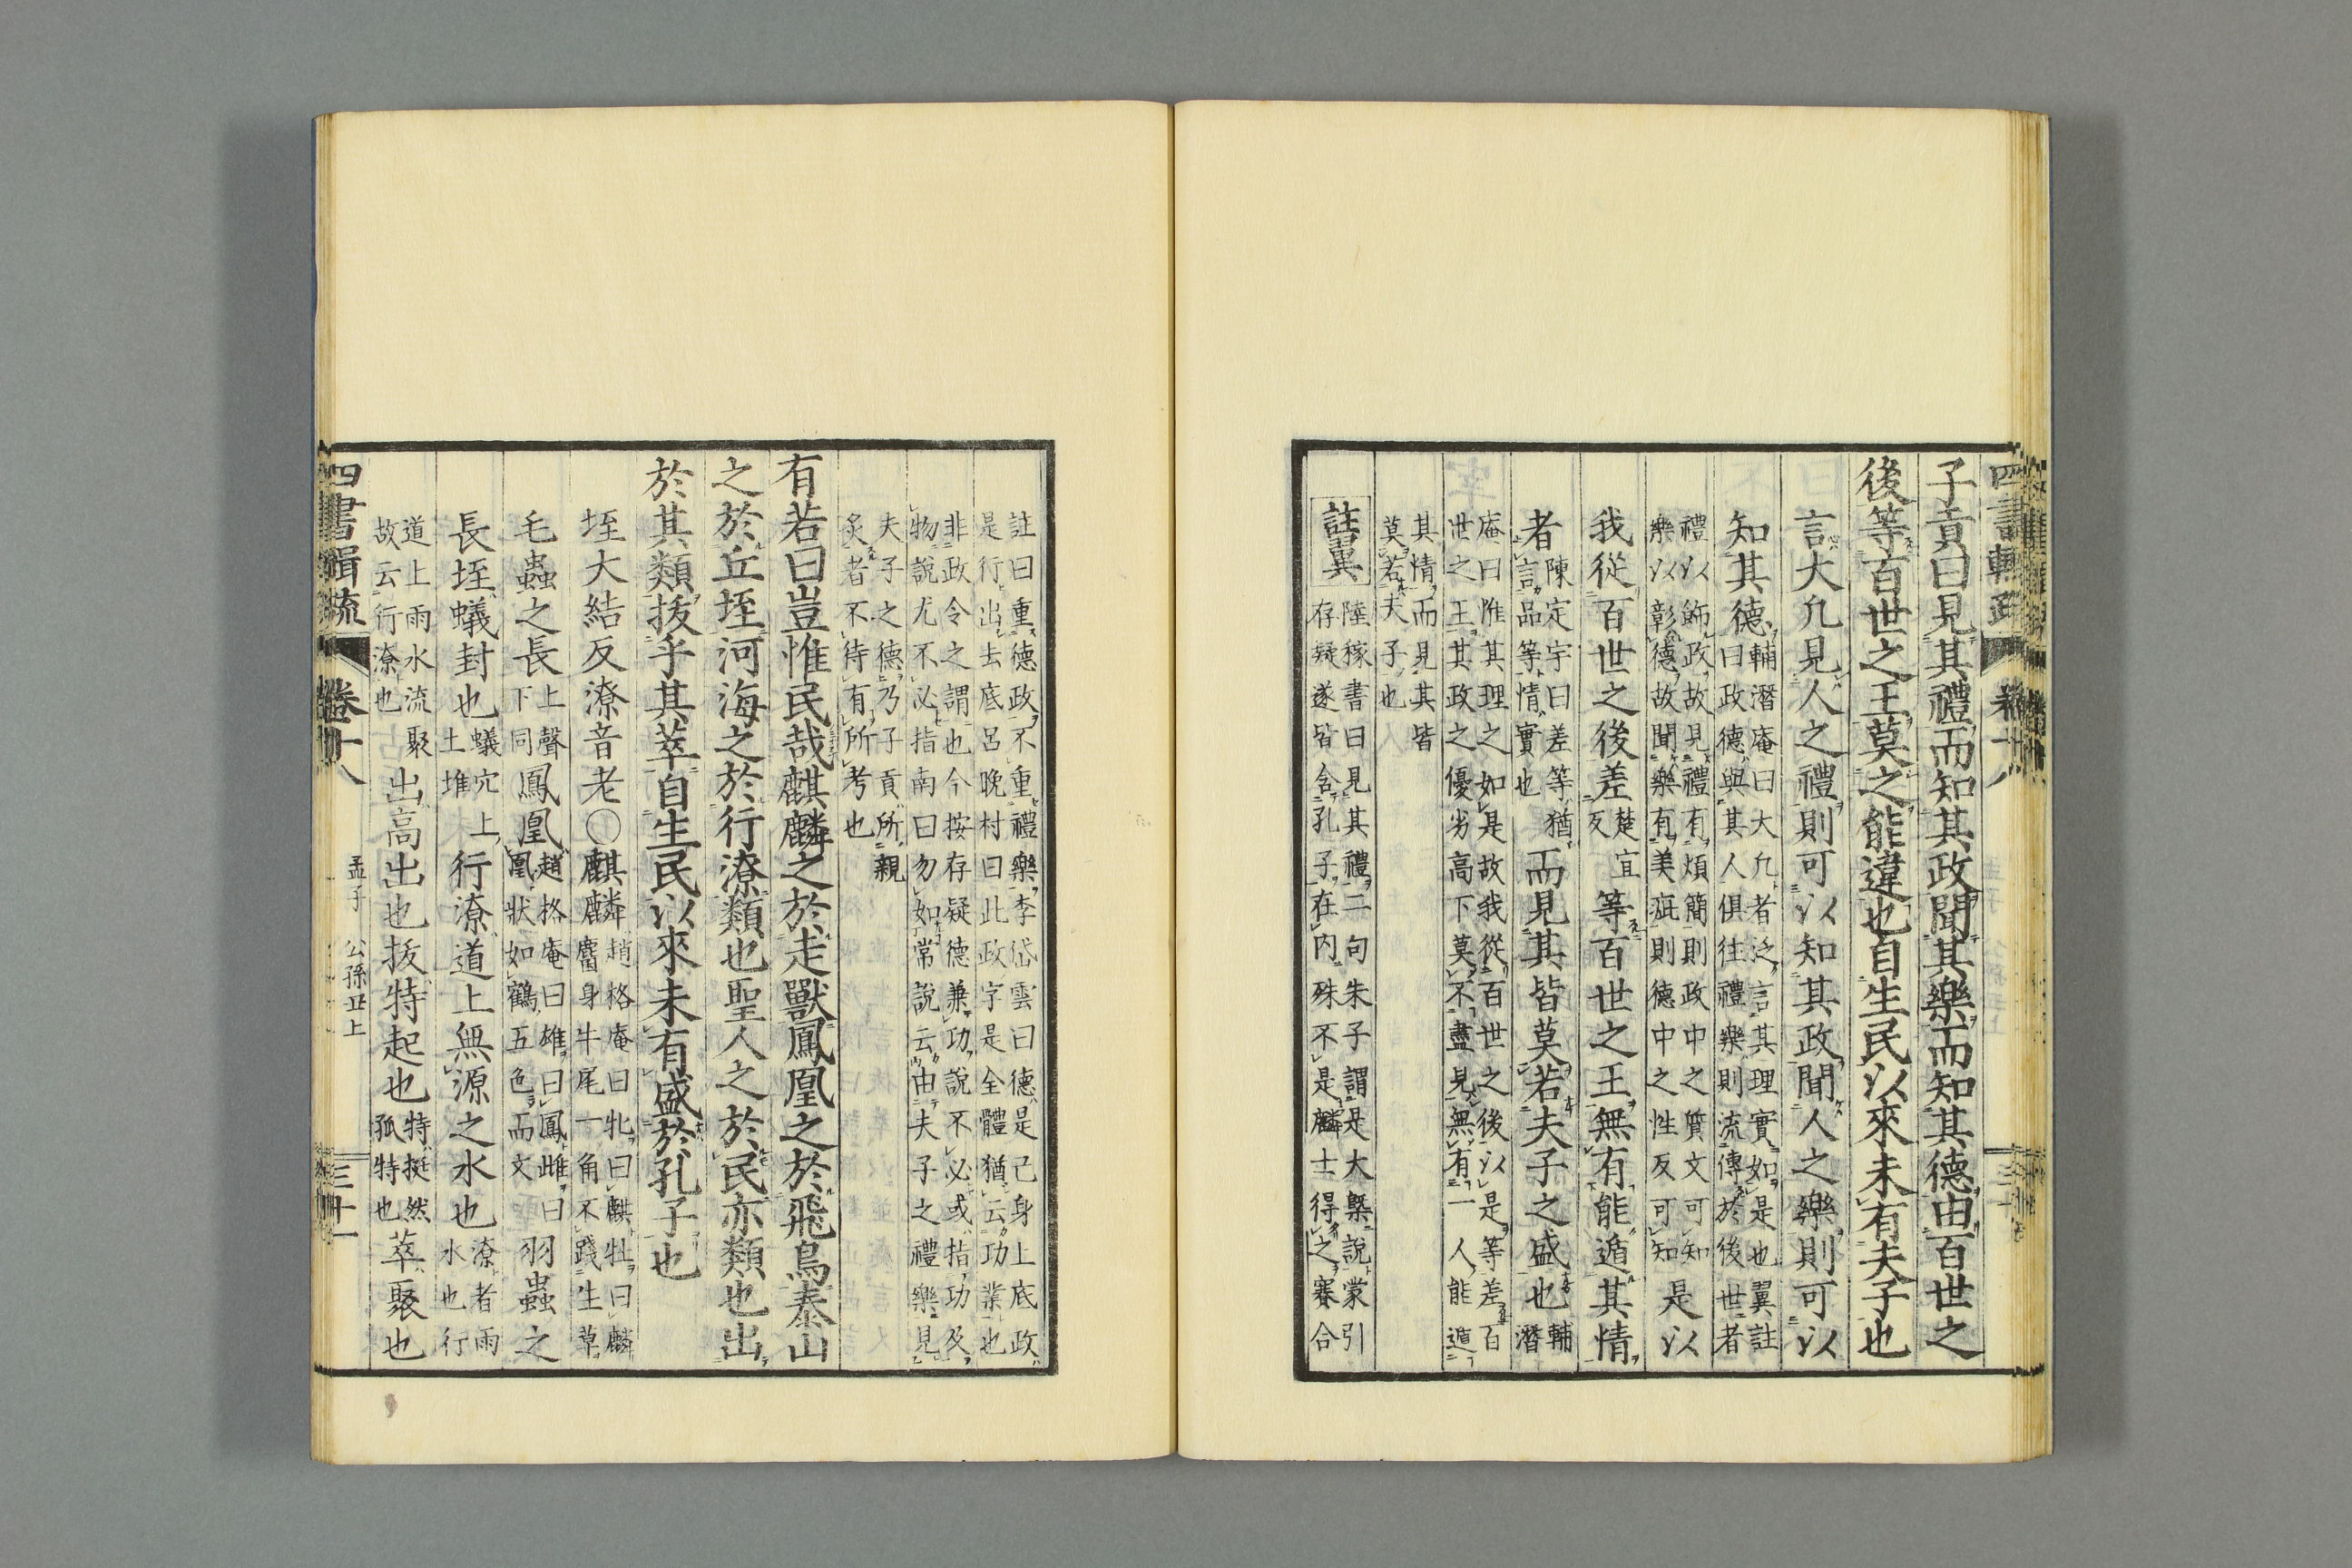 子貢曰見其禮而知其政聞其樂而知其德由百世之
後等百世之王莫之能違也自生民以來未有夫子也
言大凡見人之禮則可以知其政聞人之樂則可以
知其德輔潛庵曰大凡者泛言其理實如是也翼註
曰政德與其人俱往禮樂則流傳於後世者
禮以飾政故見禮有煩簡則政中之質文可知
樂以彰德故聞樂有美疵則德中之性反可知是以
我從百世之後差楚宜反等百世之王無有能遁其情
者陳定宇曰差等猶言品等情實也而見其皆莫若夫子之盛也輔潛
庵曰惟其理之如是故我從百世之後以是等差百
世之王其政之優劣高下莫不盡見無有一人能遁
其情而見其皆
莫若夫子也
詿翼陸稼書曰見其禮二句朱子謂是大槩說蒙引
存疑遂皆含孔子在内殊不是麟士得之賽合
註曰重德政不重禮樂李岱雲曰德是己身上底政
是行出去底呂晚村曰此政字是全體猶云功業也
非政令之謂也今按存疑德兼功說不必或指功及
物說尤不必指南曰勿如常說云由夫子之禮樂見
夫子之德乃子貢所親
炙者不待有所考也
有若曰豈惟民哉麒麟之於走獸鳳凰之於飛鳥泰山
之於丘垤河海之於行潦類也聖人之於民亦類也出
於其類拔乎其萃自生民以來未有盛於孔子也
垤大結反潦音老〇麒麟趙格庵曰牝曰麒牡曰麟
麕身牛尾一角不踐生草
毛蟲之長上聲下同鳳凰趙格庵曰雄曰鳳雌曰
凰狀如鶴五色而文羽蟲之
長垤蟻封也蟻穴上土堆行潦道上無源之水也潦者雨
水也行
道上雨水流聚
故云行潦也出高出也拔特起也特挺然
孤特也萃聚也
四書輯疏
卷十八
孟子 公孫丑上
三十一